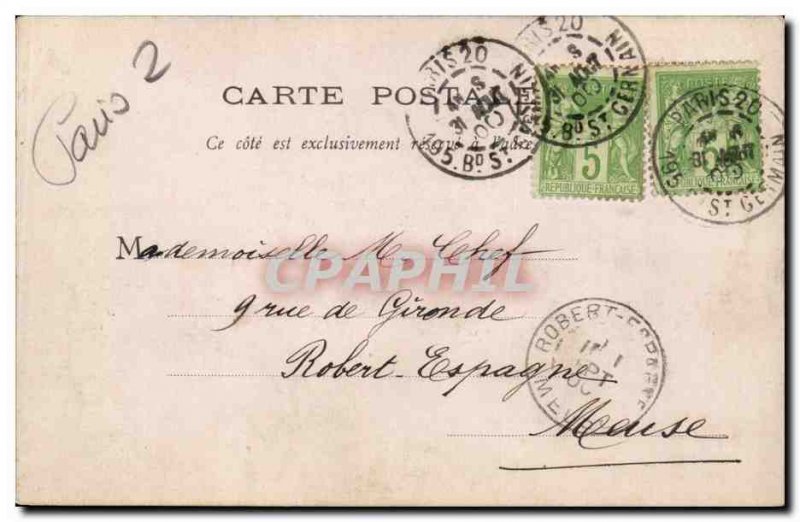 Paris 2
CARTE POSTALE
Ce côté est exclusivement réservé à l'adresse
PARIS 20
31
00
195. Bᴅ Sᵀ
PARIS 20
31
00
195. Bᴅ Sᵀ GERMAIN
5
REPUBLIQUE FRANÇAISE
POSTE
PARIS 20
31
00
195
Sᵀ GERMAIN
Mademoiselle M. Chef
9 rue de Gironde
Robert-Espagne
Meuse
ROBERT-ESPAGNE
CPAPHIL